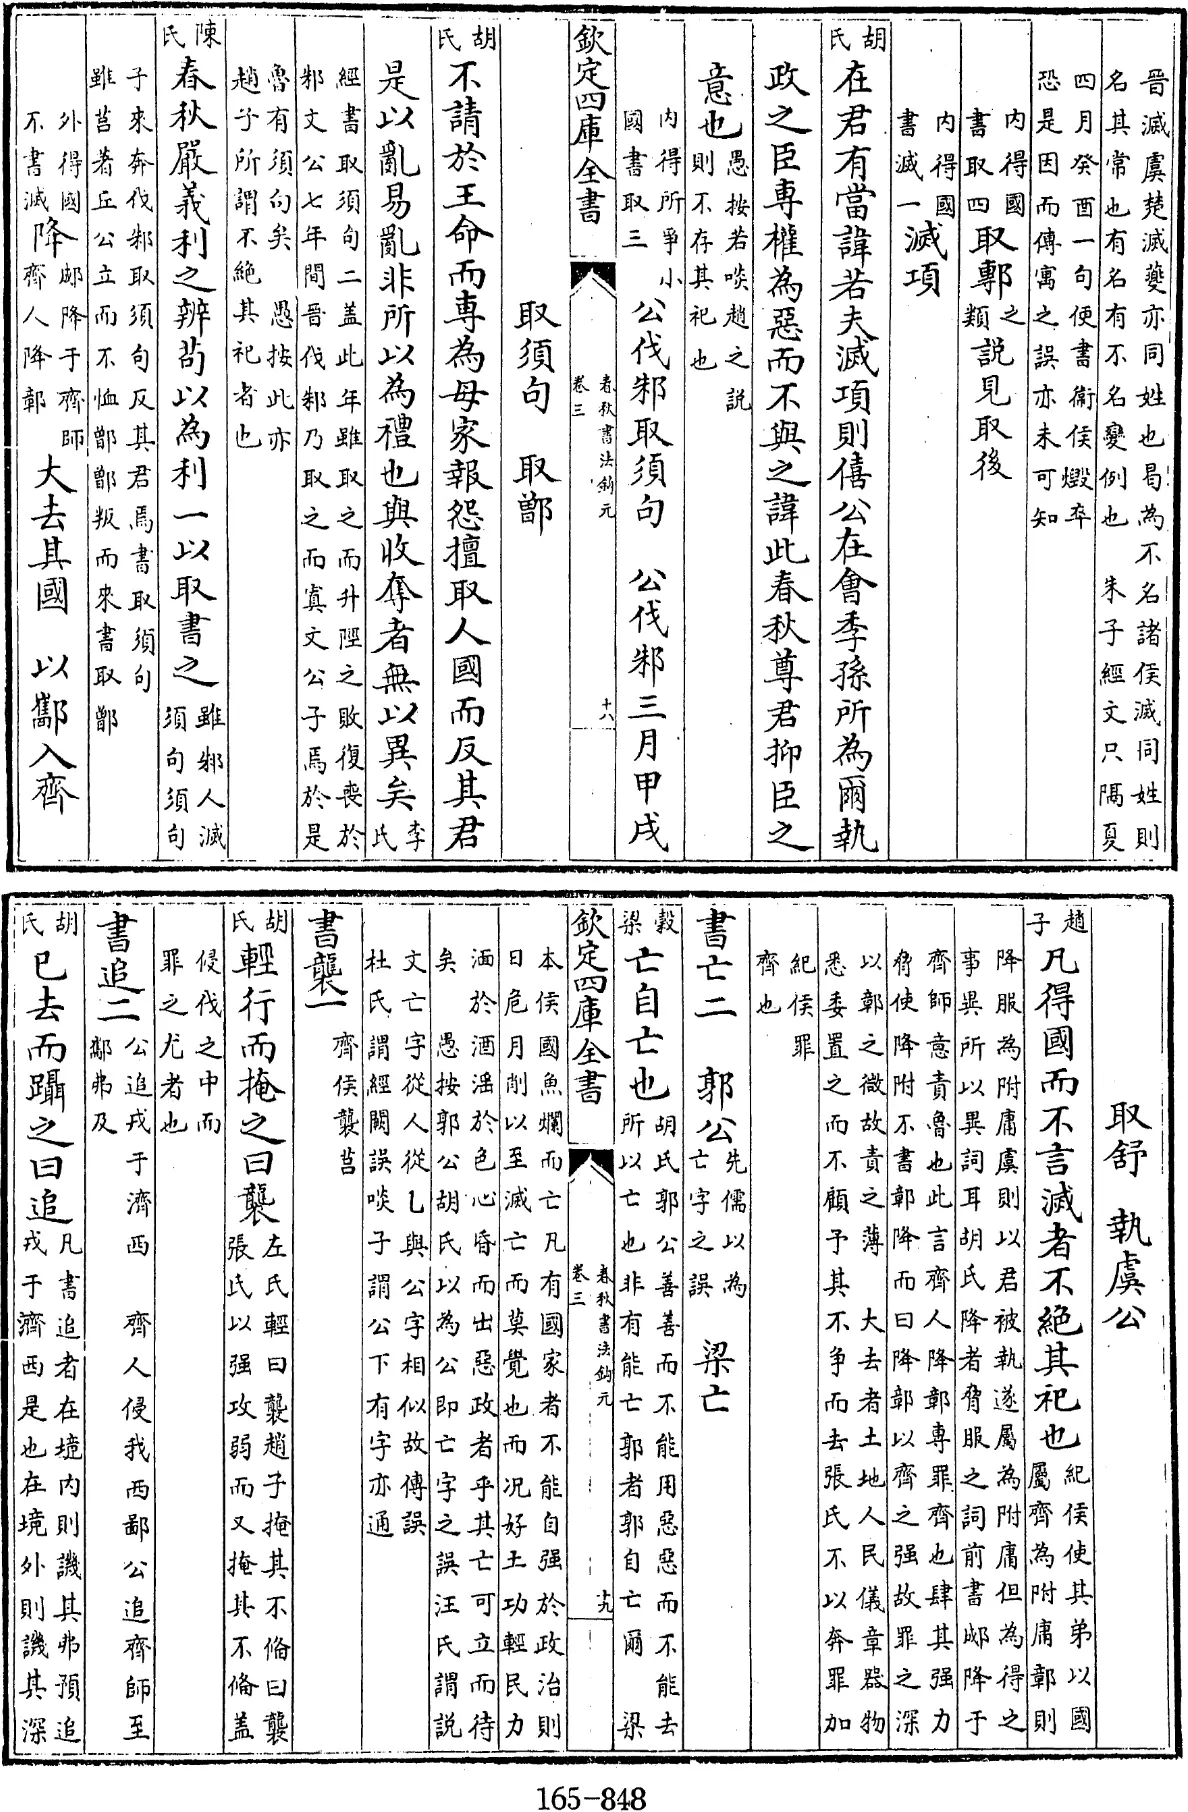 晉滅虞楚滅夔亦同姓也曷為不名諸侯滅同姓則
名其常也有名有不名變例也　朱子經文只隔夏
四月癸酉一句便書衞侯燬卒
恐是因而傳寓之誤亦未可知
内得國書取四　取鄟之類説見取後
内得國書滅一　滅項
胡氏　在君有當諱若夫滅項則僖公在會季孫所為爾執
政之臣専權為惡而不與之諱此春秋尊君抑臣之
意也　愚按若啖趙之説則不存其祀也
内得所爭小國書取三　公伐邾取須句　公伐邾三月甲戌
欽定四庫全書　春秋書法鈎元　卷三　十八
取須句　取鄫
胡氏　不請於王命而専為母家報怨擅取人國而反其君
是以亂易亂非所以為禮也與收奪者無以異矣　李氏
經書取須句二盖此年雖取之而升陘之敗復喪於
邾文公七年間晉伐邾乃取之而寘文公子焉於是
魯有須句矣　愚按此亦
趙子所謂不絶其祀者也
陳氏　春秋嚴義利之辨茍以為利一以取書之　雖邾人滅須句須句
子來奔伐邾取須句反其君焉書取須句
雖莒著丘公立而不恤鄫鄫叛而來書取鄫
外得國不書滅　降　郕降于齊師齊人降鄣　大去其國　以酅入齊
取舒　執虞公
趙子　凡得國而不言滅者不絶其祀也　紀侯使其弟以國屬齊為附庸鄣則
降服為附庸虞則以君被執遂屬為附庸但為得之
事異所以異詞耳胡氏降者脅服之詞前書郕降于
齊師意責魯也此言齊人降鄣専罪齊也肆其强力
脅使降附不書鄣降而曰降鄣以齊之强故罪之深
以鄣之微故責之薄　大去者土地人民儀章器物
悉委置之而不顧予其不争而去張氏不以奔罪加
紀侯罪
齊也
書亡二　郭公　先儒以為亡字之誤　梁亡
穀梁　亡自亡也　胡氏郭公善善而不能用惡惡而不能去所以亡也非有能亡郭者郭自亡爾　梁
欽定四庫全書　春秋書法鈎元　卷三　十九
本侯國魚爛而亡凡有國家者不能自强於政治則
日危月削以至滅亡而莫覺也而况好土功輕民力
湎於酒滛於色心昏而出惡政者乎其亡可立而待
矣　愚按郭公胡氏以為公即亡字之誤汪氏謂説
文亡字從人從乚與公字相似故傳誤
杜氏謂經闕誤啖子謂公下有字亦通
書襲一　齊侯襲莒
胡氏　輕行而掩之曰襲　左氏輕曰襲趙子掩其不偹曰襲張氏以强攻弱而又掩其不偹盖
侵伐之中而
罪之尤者也
書追二　公追戎于濟西　齊人侵我西鄙公追齊師至酅弗及
胡氏　已去而躡之曰追　凡書追者在境内則譏其弗預追戎于濟西是也在境外則譏其深
165-848